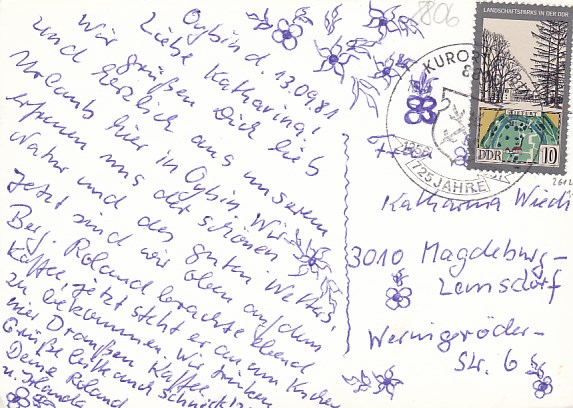 Oybin d. 13.09.81
Liebe Katharina!
Wir grüßen Dich lieb
und herzlich aus unserem
Urlaub hier in Oybin. Wir
erfreuen uns der schönen
Natur und des guten Wetters.
Jetzt sind wir oben auf dem
Berg. Roland brachte eben
Kaffee, jetzt steht er an um Kuchen
zu bekommen. Wir trinken
hier Draußen Kaffee.
Grüße
Deine Roland
u.
806
LANDSCHAFTSPARKS IN DER DDR
DDR 10
KURO
725 JAHRE
Frl.
Katharina
3010 Magdeburg-
Lemsdorf
Wernigeröder-
Str. 6